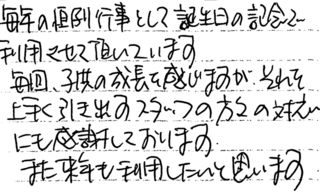 毎年の恒例行事として誕生日の記念で
利用させて頂いています
毎回、子供の成長を感じますが、それを
上手く引き出すスタッフの方々の対応
にも感謝しております
また来年も利用したいと思います